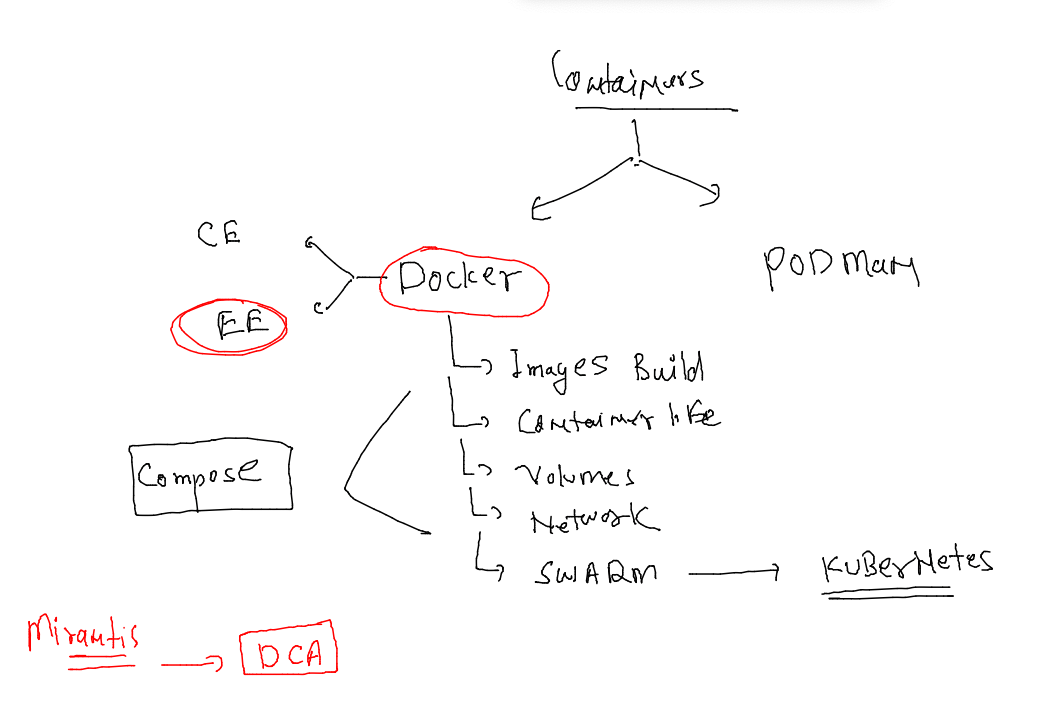 Containers
CE
Docker
PODMan
EE
Images Build
Container life
Compose
Volumes
Network
SWARM
KUBerNetes
Mirantis
DCA